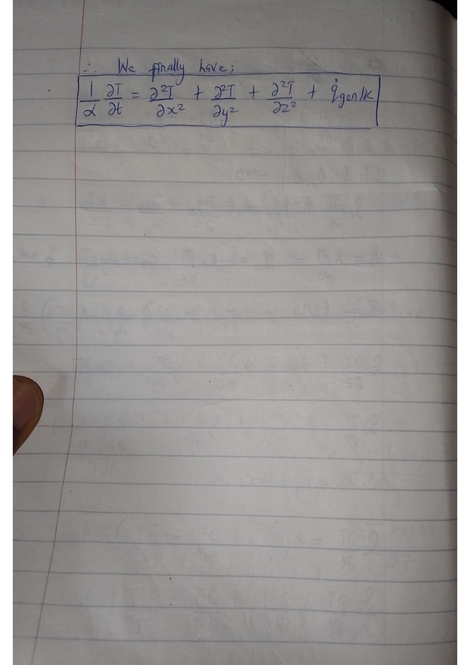 ∴ We finally have;
1/α ∂T/∂t = ∂²T/∂x² + ∂²T/∂y² + ∂²T/∂z² + q̇gen/k